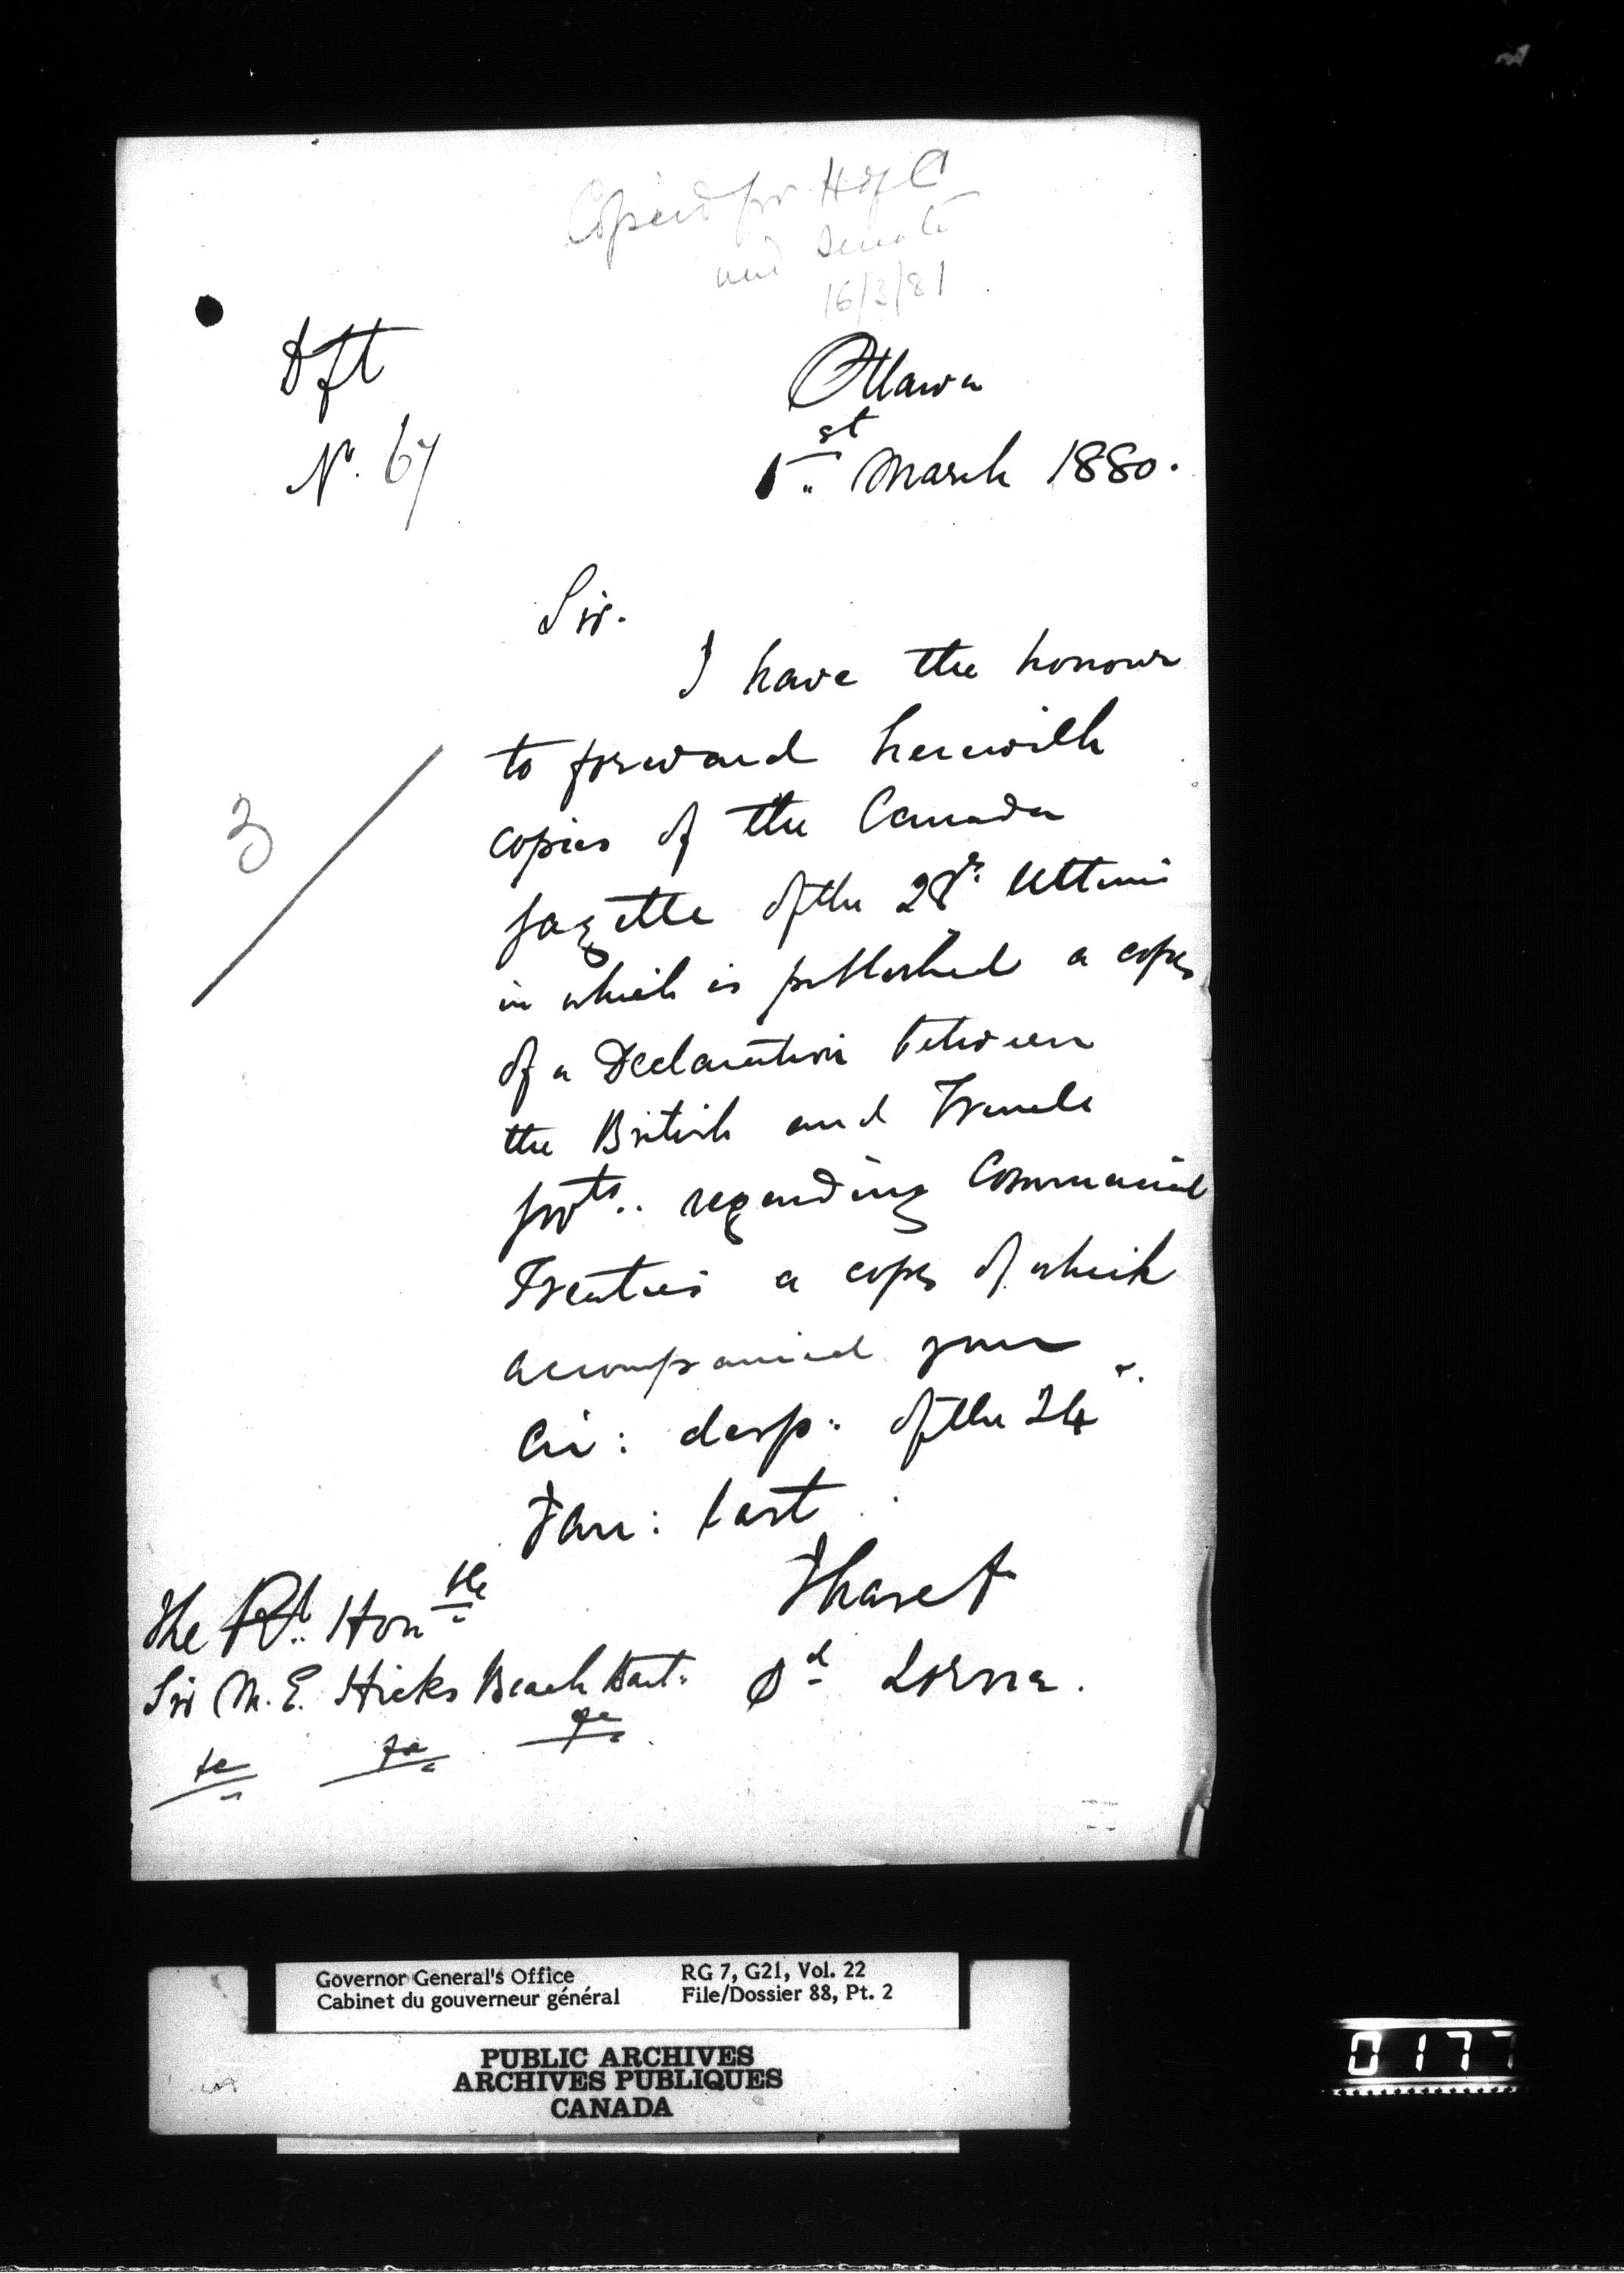 Copied for H of C
and Senate
16/3/81
Dft
No. 67
Ottawa
1st March 1880.
Sir.
I have the honour
to forward herewith
3
copies of the Canada
Gazette of the 28th. Ultimo
in which is published a copy
of a Declaration between
the British and French
Govts.. regarding Commercial
Treaties a copy of which
accompanied your
Cir: desp: of the 24th.
Jan: last
I have &c
Sd Lorne.
The Rt. Honble
Sir M. E. Hicks Beach Bart.
&c &c &c
Governor General's Office
Cabinet du gouverneur général
RG 7, G21, Vol. 22
File/Dossier 88, Pt. 2
PUBLIC ARCHIVES
ARCHIVES PUBLIQUES
CANADA
0177